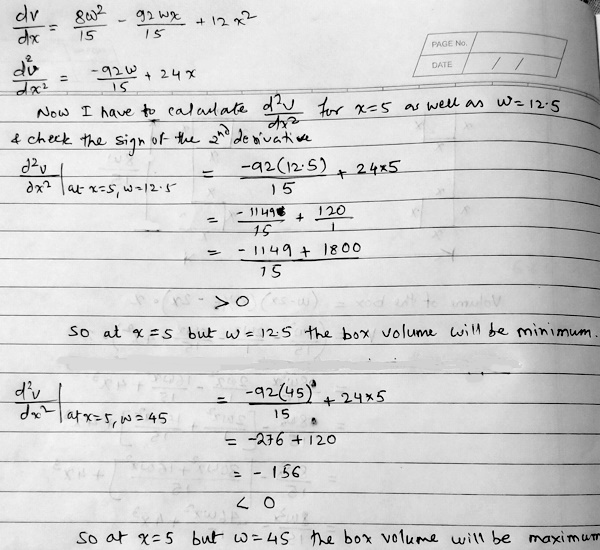 dv/dx = 8w²/15 - 92wx/15 + 12x²
PAGE No.
DATE / /
d²v/dx² = -92w/15 + 24x
Now I have to calculate d²v/dx² for x=5 as well as w=12.5
& check the sign of the 2nd derivative
d²v/dx² | at x=5, w=12.5 = -92(12.5)/15 + 24×5
= -1149/15 + 120/1
= -1149 + 1800/15
>0
so at x=5 but w=12.5 the box volume will be minimum.
d²v/dx² | at x=5, w=45 = -92(45)/15 + 24×5
= -276 + 120
= -156
< 0
so at x=5 but w=45 the box volume will be maximum